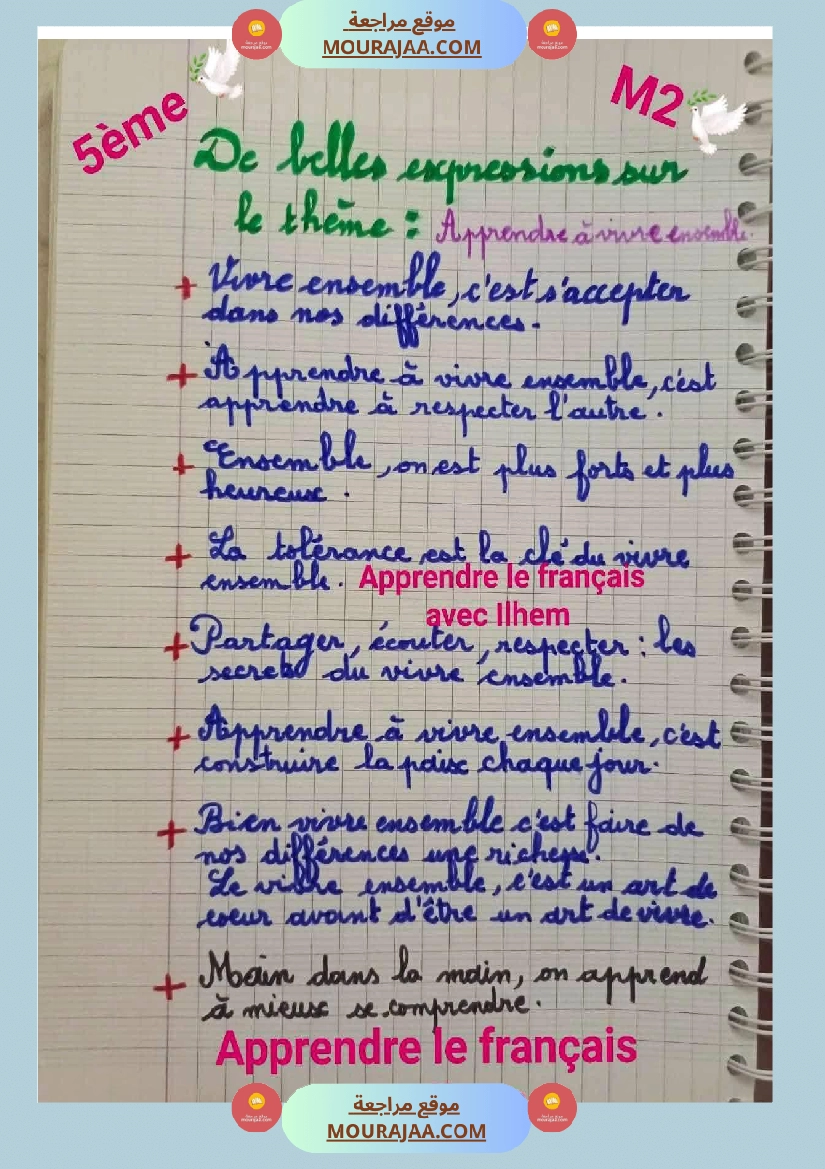 موقع مراجعة
MOURAJAA.COM
5ème
M2
De belles expressions sur
le thème : Apprendre à vivre ensemble.
+ Vivre ensemble, c'est s'accepter
dans nos différences.
+ Apprendre à vivre ensemble, c'est
apprendre à respecter l'autre.
+ Ensemble, on est plus forts et plus
heureux.
+ La tolérance est la clé du vivre
ensemble.
Apprendre le français
avec Ilhem
+ Partager, écouter, respecter : les
secrets du vivre ensemble.
+ Apprendre à vivre ensemble, c'est
construire la paix chaque jour.
+ Bien vivre ensemble c'est faire de
nos différences une richesse.
Le vivre ensemble, c'est un art de
coeur avant d'être un art de vivre.
+ Main dans la main, on apprend
à mieux se comprendre.
Apprendre le français
موقع مراجعة
MOURAJAA.COM